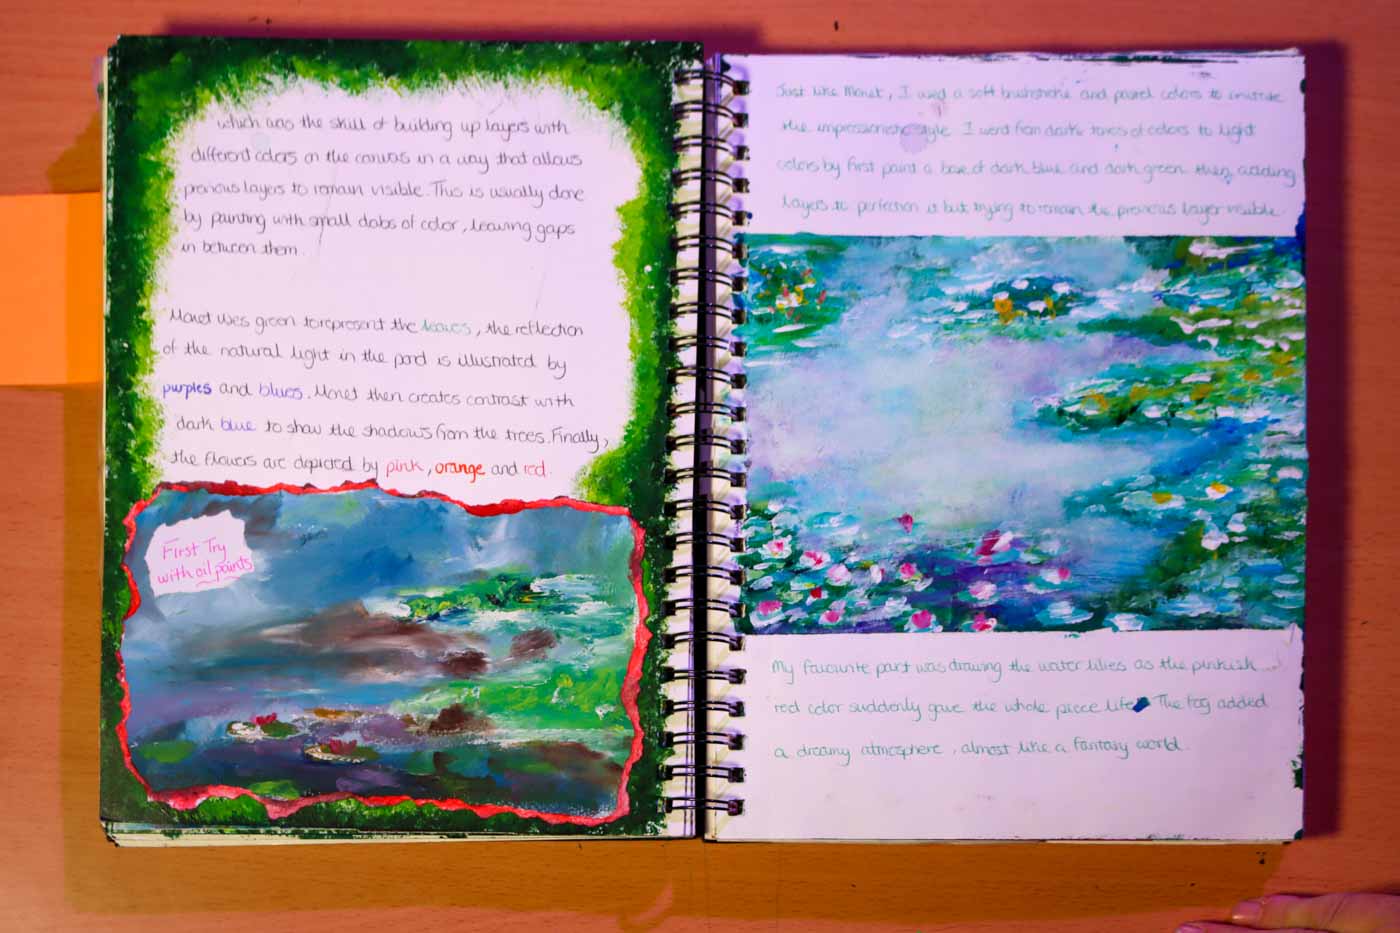 which was the skill of building up layers with
different colors on the canvas in a way that allows
previous layers to remain visible. This is usually done
by painting with small dabs of color, leaving gaps
in between them.
Monet uses green to represent the leaves, the reflection
of the natural light in the pond is illustrated by
purples and blues. Monet then creates contrast with
dark blue to show the shadows from the trees. Finally,
the flowers are depicted by pink, orange and red.
First Try
with oil paints
Just like Monet, I used a soft brushstroke and pastel colors to imitate
the impressionistic style. I went from dark tones of colors to light
colors by first paint a base of dark blue and dark green then adding
layers to perfection it but trying to remain the previous layer visible.
My favourite part was drawing the water lilies as the pinkish
red color suddenly gave the whole piece life. The fog added
a dreamy atmosphere, almost like a fantasy world.